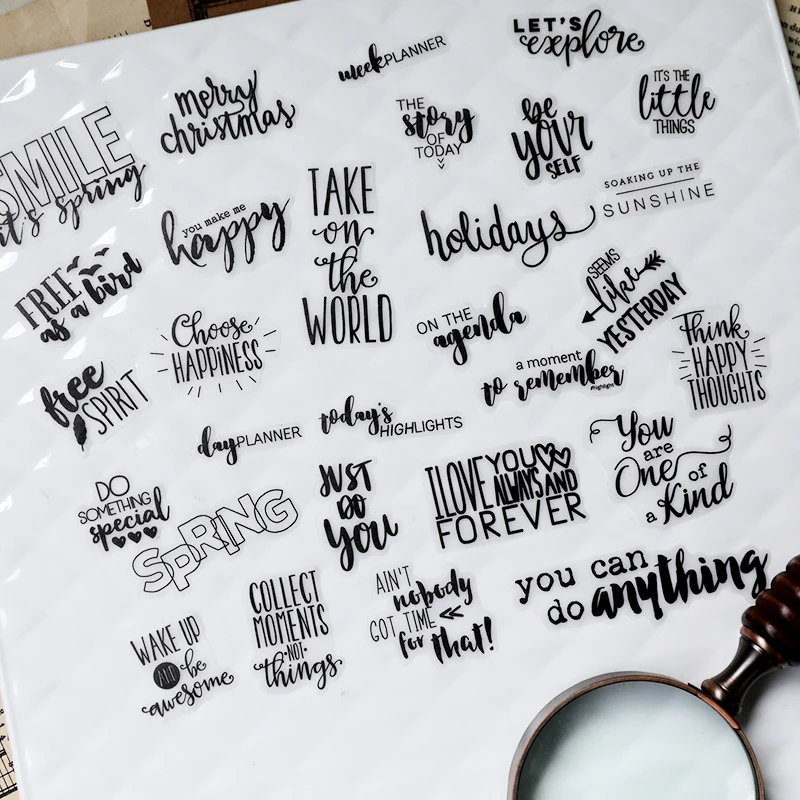 LET'S
explore
weekPLANNER
merry
christmas
THE
story
OF
TODAY
be
YOUR
SELF
IT'S THE
little
THINGS
SMILE
it's spring
you make me
happy
TAKE
on
the
WORLD
holidays
SOAKING UP THE
SUNSHINE
FREE
as a bird
Choose
HAPPINESS
ON THE
agenda
SEEMS
like
YESTERDAY
Think
HAPPY
THOUGHTS
free
SPIRIT
a moment
to remember
#highlight
dayPLANNER
today's
HIGHLIGHTS
DO
SOMETHING
special
SPRING
JUST
DO
YOU
I LOVE YOU
ALWAYS AND
FOREVER
You
are
One of
a Kind
WAKE UP
AND be
awesome
COLLECT
MOMENTS
·NOT·
things
AIN'T
nobody
GOT TIME
for that!
you can
do anything